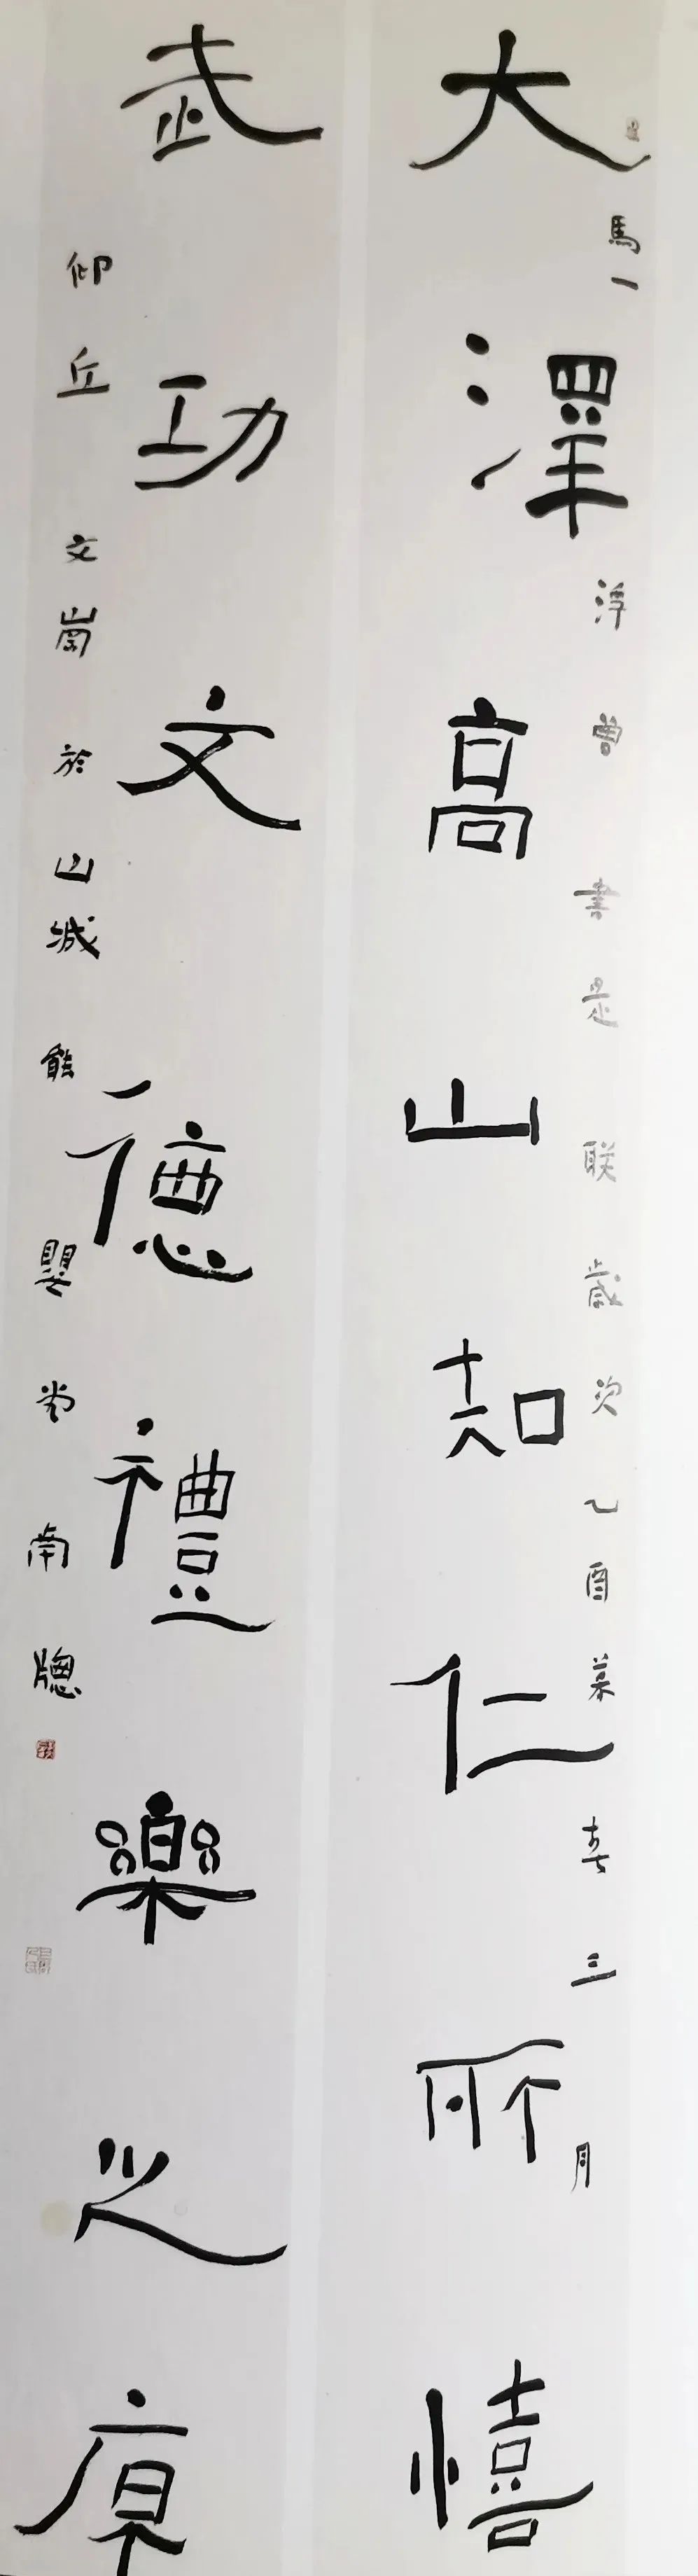 大澤高山知仁所憘
馬一浮曾書是联歲次乙酉莫春三月
武功文德禮樂之原
仰丘文崗於山城能嬰堂南牕